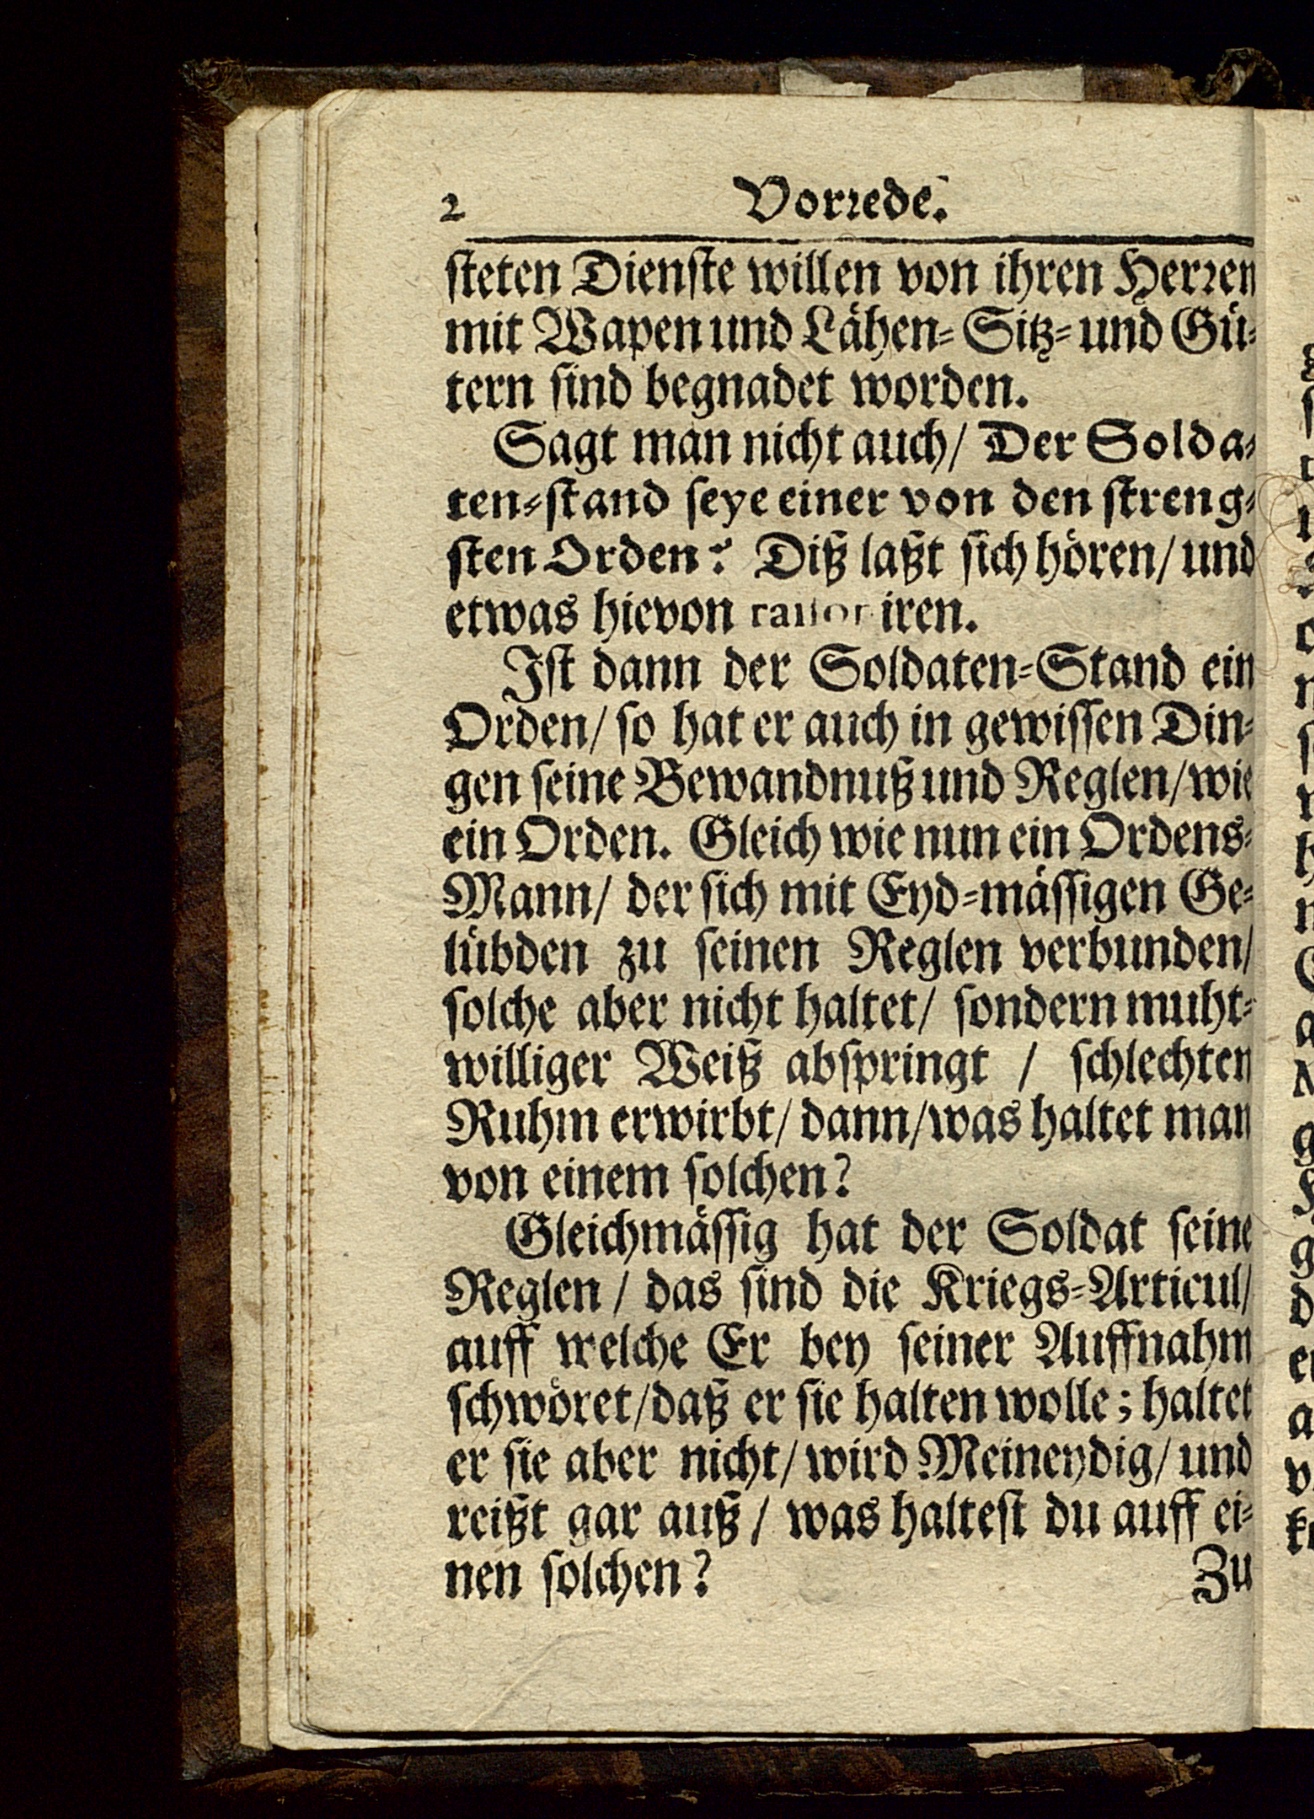 2 Vorrede.
steten Dienste willen von ihren Herren
mit Wapen und Lähen- Sitz- und Gü-
tern sind begnadet worden.
Sagt man nicht auch/ Der Solda-
ten-stand seye einer von den streng-
sten Orden? Diß laßt sich hören/ und
etwas hievon iren.
Ist dann der Soldaten-Stand ein
Orden/ so hat er auch in gewissen Din-
gen seine Bewandnuß und Reglen/ wie
ein Orden. Gleich wie nun ein Ordens-
Mann/ der sich mit Eyd-mässigen Ge-
lübden zu seinen Reglen verbunden/
solche aber nicht haltet/ sondern muht-
williger Weiß abspringt / schlechten
Ruhm erwirbt/ dann/ was haltet man
von einem solchen?
Gleichmässig hat der Soldat seine
Reglen / das sind die Kriegs-Articul/
auff welche Er bey seiner Auffnahm
schwöret/ daß er sie halten wolle; haltet
er sie aber nicht/ wird Meineydig/ und
reißt gar auß / was haltest du auff ei-
nen solchen? Zu